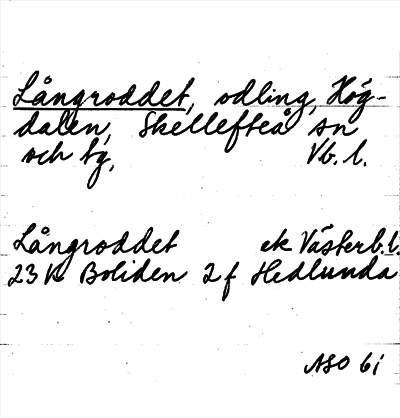 Långroddet, odling, Hög-
dalen, Skellefteå sn
och tg, Vb. l.
Långroddet ek Västerb. l.
23 K Boliden 2 f Hedlunda
ASO 6i